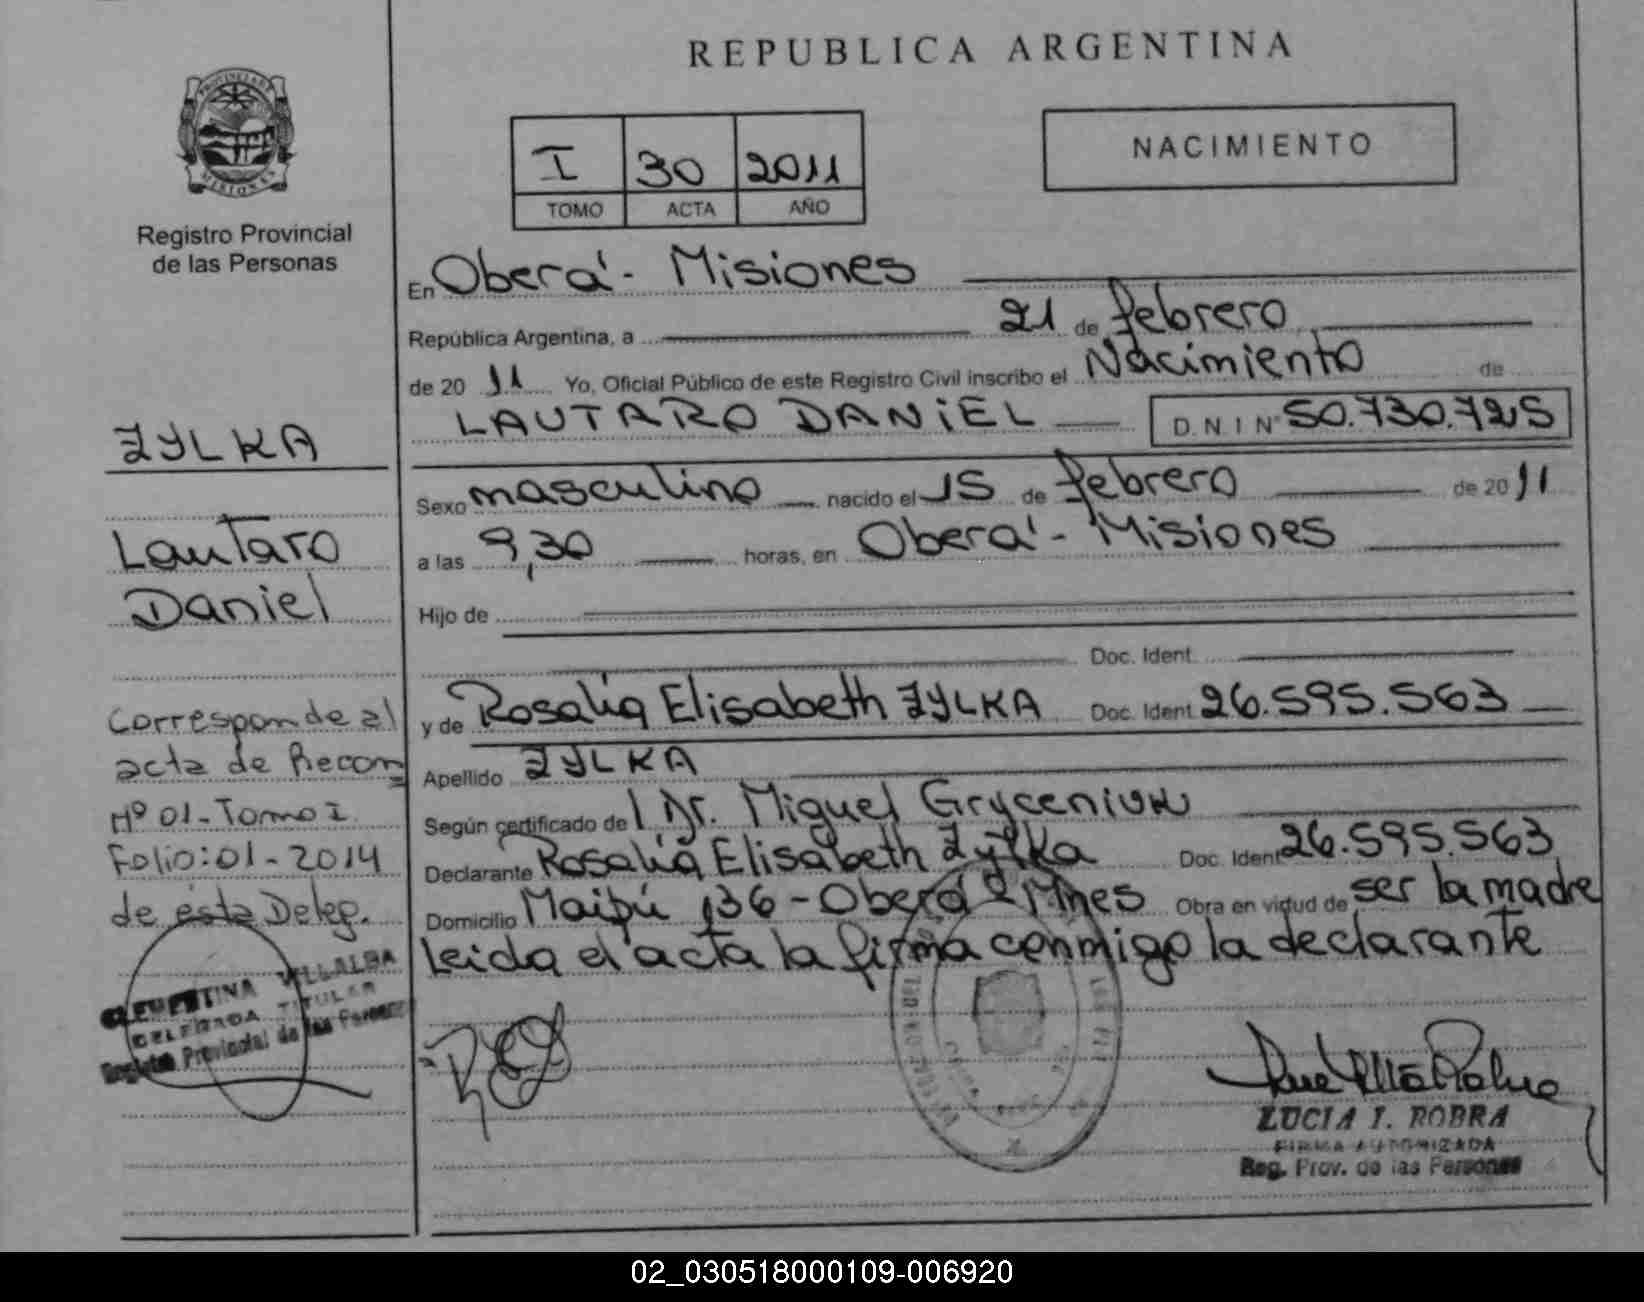 REPUBLICA ARGENTINA
PROVINCIA DE
MISIONES
Registro Provincial
de las Personas
I 30 2011
TOMO ACTA AÑO
NACIMIENTO
En Oberá - Misiones
República Argentina, a 21 de febrero
de 2011 Yo, Oficial Público de este Registro Civil inscribo el Nacimiento de
LAUTARO DANIEL D.N.I Nº 50.730.725
ZYLKA
Lautaro
Daniel
Sexo masculino nacido el 15 de febrero de 2011
a las 9,30 horas, en Oberá - Misiones
Hijo de
Doc. Ident.
y de Rosalia Elisabeth ZYLKA Doc. Ident. 26.595.563
Apellido ZYLKA
Según certificado del Dr. Miguel
Declarante Rosalia Elisabeth Zylka Doc. Ident. 26.595.563
Domicilio Maipú 136 - Oberá - Mnes Obra en virtud de ser la madre
leida el acta la firma conmigo la declarante
Corresponde al
acta de Recon
Nº 01 - Tomo I
Folio: 01 - 2014
de esta Deleg.
CLEMENTINA VILLALBA
DELEGADA TITULAR
Registro Provincial de las Personas
LUCIA I. ROBRA
FIRMA AUTORIZADA
Reg. Prov. de las Personas
02_030518000109-006920